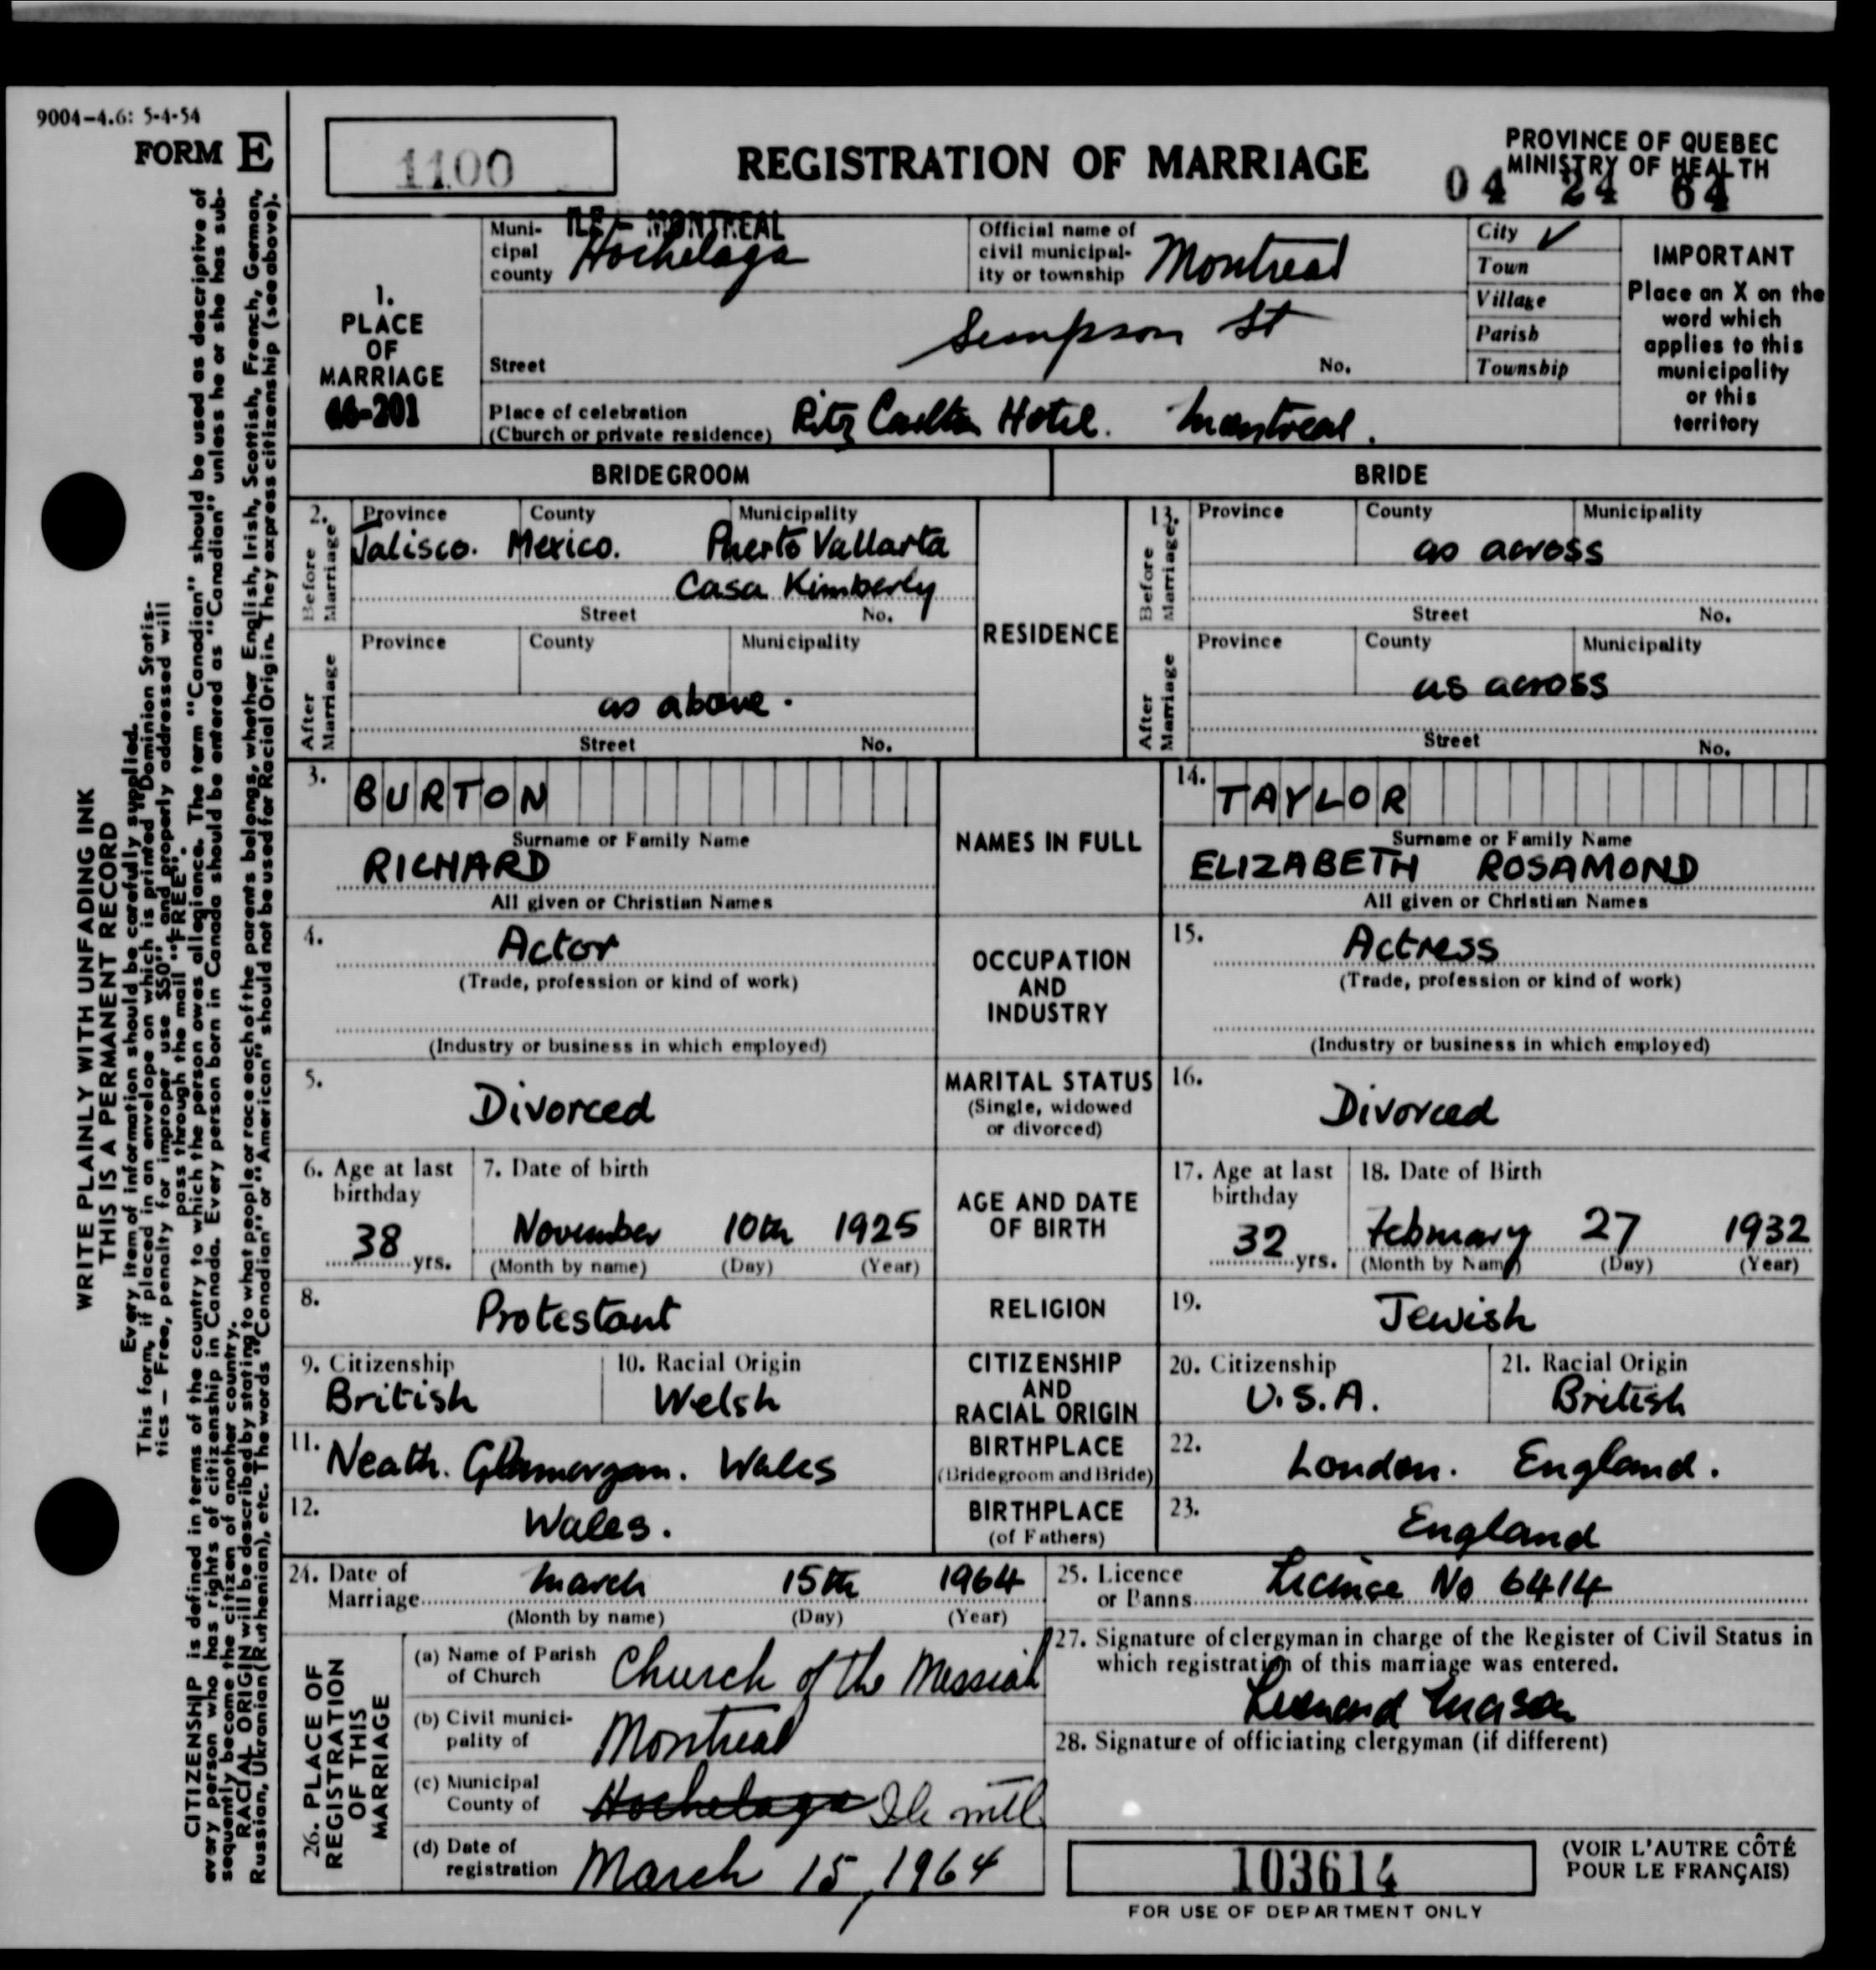 9004-4.6: 5-4-54
FORM E
WRITE PLAINLY WITH UNFADING INK
THIS IS A PERMANENT RECORD
Every item of information should be carefully supplied.
This form, if placed in an envelope on which is printed "Dominion Statis-
tics — Free, penalty for improper use $50" and properly addressed will
pass through the mail "FREE".
CITIZENSHIP is defined in terms of the country to which the person owes allegiance. The term "Canadian" should be used as descriptive of
every person who has rights of citizenship in Canada. Every person born in Canada should be entered as "Canadian" unless he or she has sub-
sequently become the citizen of another country.
RACIAL ORIGIN will be described by stating to what people or race each of the parents belongs, whether English, Irish, Scottish, French, German,
Russian, Ukranian (Ruthenian), etc. The words "Canadian" or "American" should not be used for Racial Origin. They express citizenship (see above).
1100
REGISTRATION OF MARRIAGE
PROVINCE OF QUEBEC
MINISTRY OF HEALTH
04 24 64
1. PLACE OF MARRIAGE
66-201
Municipal county
ILE - MONTREAL
Hochelaga
Official name of civil municipality or township Montreal
City ✓
Town
Village
Parish
Township
IMPORTANT
Place an X on the
word which
applies to this
municipality
or this
territory
Street Simpson St No.
Place of celebration
(Church or private residence) Ritz Carlton Hotel. Montreal.
BRIDEGROOM BRIDE
2. Before Marriage
Province County Municipality
Jalisco. Mexico. Puerto Vallarta
Casa Kimberly
Street No.
RESIDENCE
13. Before Marriage
Province County Municipality
as across
Street No.
After Marriage
Province County Municipality
as above.
Street No.
After Marriage
Province County Municipality
as across
Street No.
3. BURTON
Surname or Family Name
RICHARD
All given or Christian Names
NAMES IN FULL
14. TAYLOR
Surname or Family Name
ELIZABETH ROSAMOND
All given or Christian Names
4. Actor
(Trade, profession or kind of work)
(Industry or business in which employed)
OCCUPATION
AND
INDUSTRY
15. Actress
(Trade, profession or kind of work)
(Industry or business in which employed)
5. Divorced
MARITAL STATUS
(Single, widowed
or divorced)
16. Divorced
6. Age at last birthday
38 yrs.
7. Date of birth
November 10th 1925
(Month by name) (Day) (Year)
AGE AND DATE
OF BIRTH
17. Age at last birthday
32 yrs.
18. Date of Birth
February 27 1932
(Month by Name) (Day) (Year)
8. Protestant
RELIGION
19. Jewish
9. Citizenship
British
10. Racial Origin
Welsh
CITIZENSHIP
AND
RACIAL ORIGIN
20. Citizenship
U.S.A.
21. Racial Origin
British
11. Neath. Glamorgan. Wales
BIRTHPLACE
(Bridegroom and Bride)
22. London. England.
12. Wales.
BIRTHPLACE
(of Fathers)
23. England
24. Date of Marriage March 15th 1964
(Month by name) (Day) (Year)
25. Licence or Banns Licence No 6414
26. PLACE OF REGISTRATION OF THIS MARRIAGE
(a) Name of Parish of Church Church of the Messiah
(b) Civil municipality of Montreal
(c) Municipal County of Hochelaga Ile mtl
(d) Date of registration March 15, 1964
27. Signature of clergyman in charge of the Register of Civil Status in
which registration of this marriage was entered.
Leonard Mason
28. Signature of officiating clergyman (if different)
103614
FOR USE OF DEPARTMENT ONLY
(VOIR L'AUTRE CÔTÉ
POUR LE FRANÇAIS)